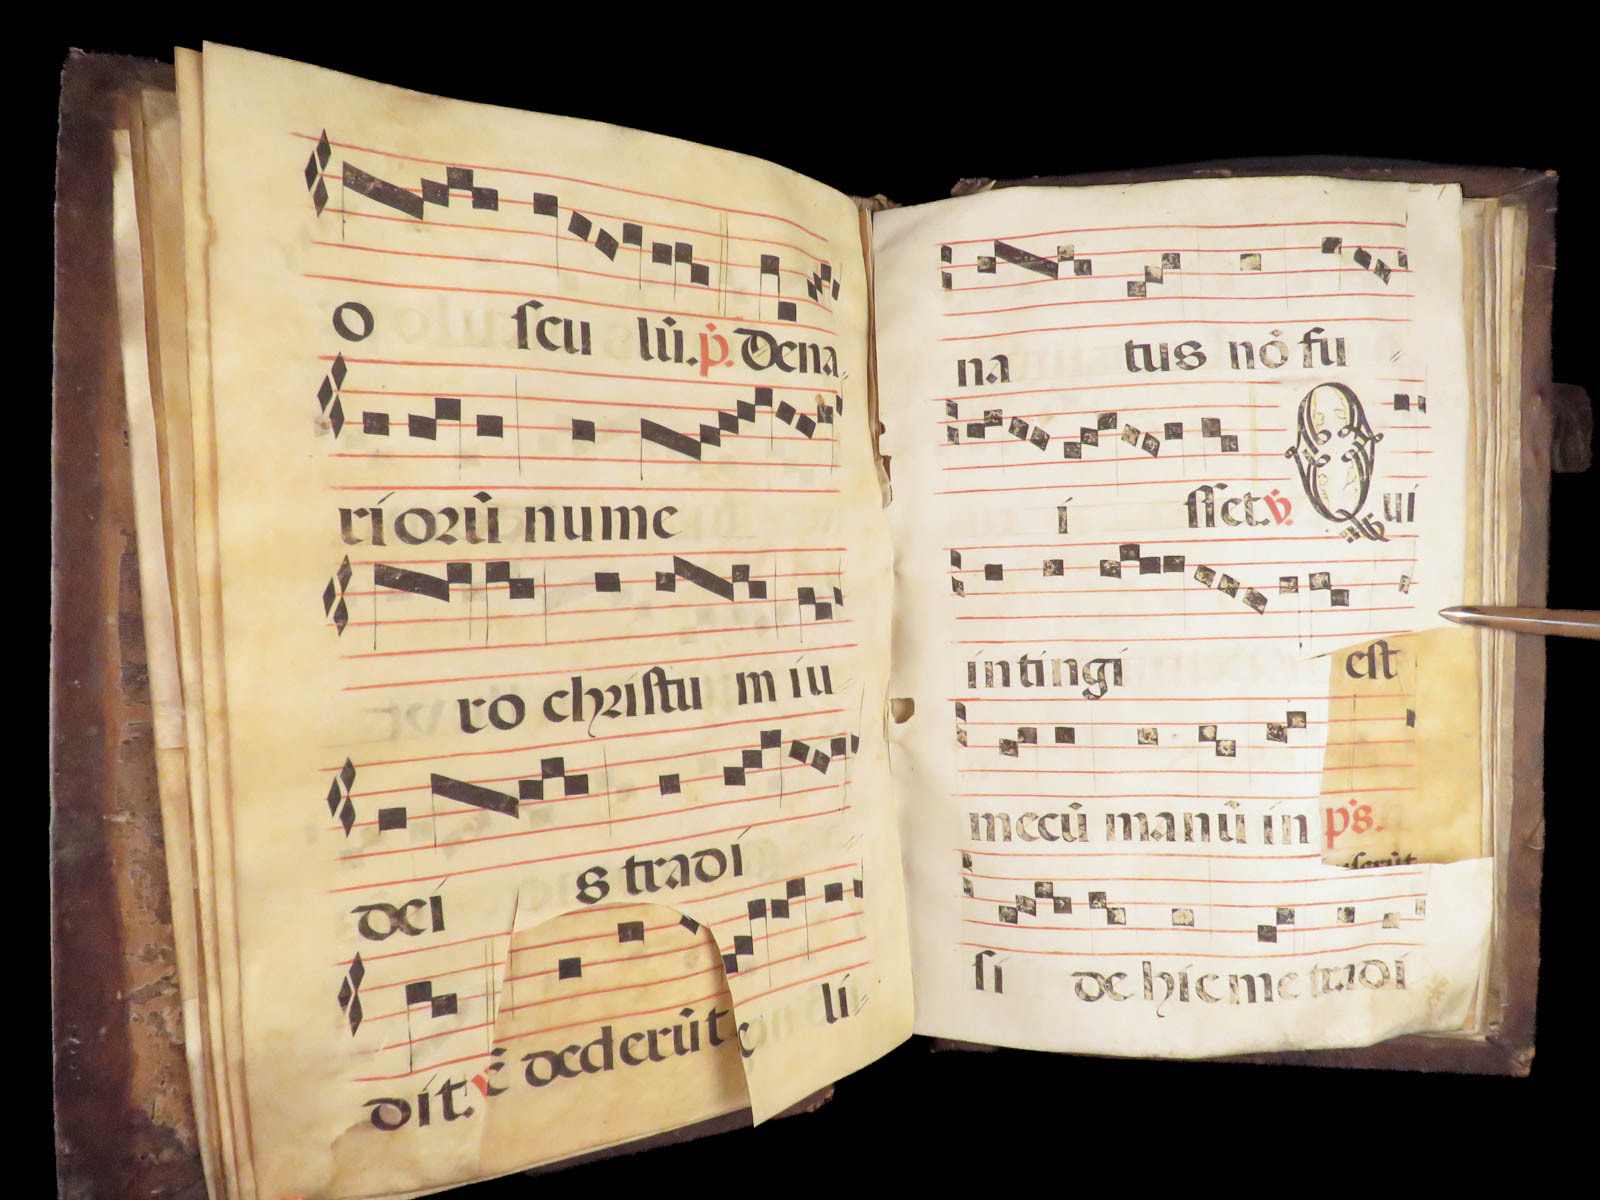 o scu lũ. p̃. Dena
riorũ nume
ro christu m iu
dei s tradi
dit. ꝟ̃ dederũt li
na tus nõ fu
i sset. ꝟ̃. Qui
intingi est
mecũ manũ in p̃s.
serũt
si de hic me tradi